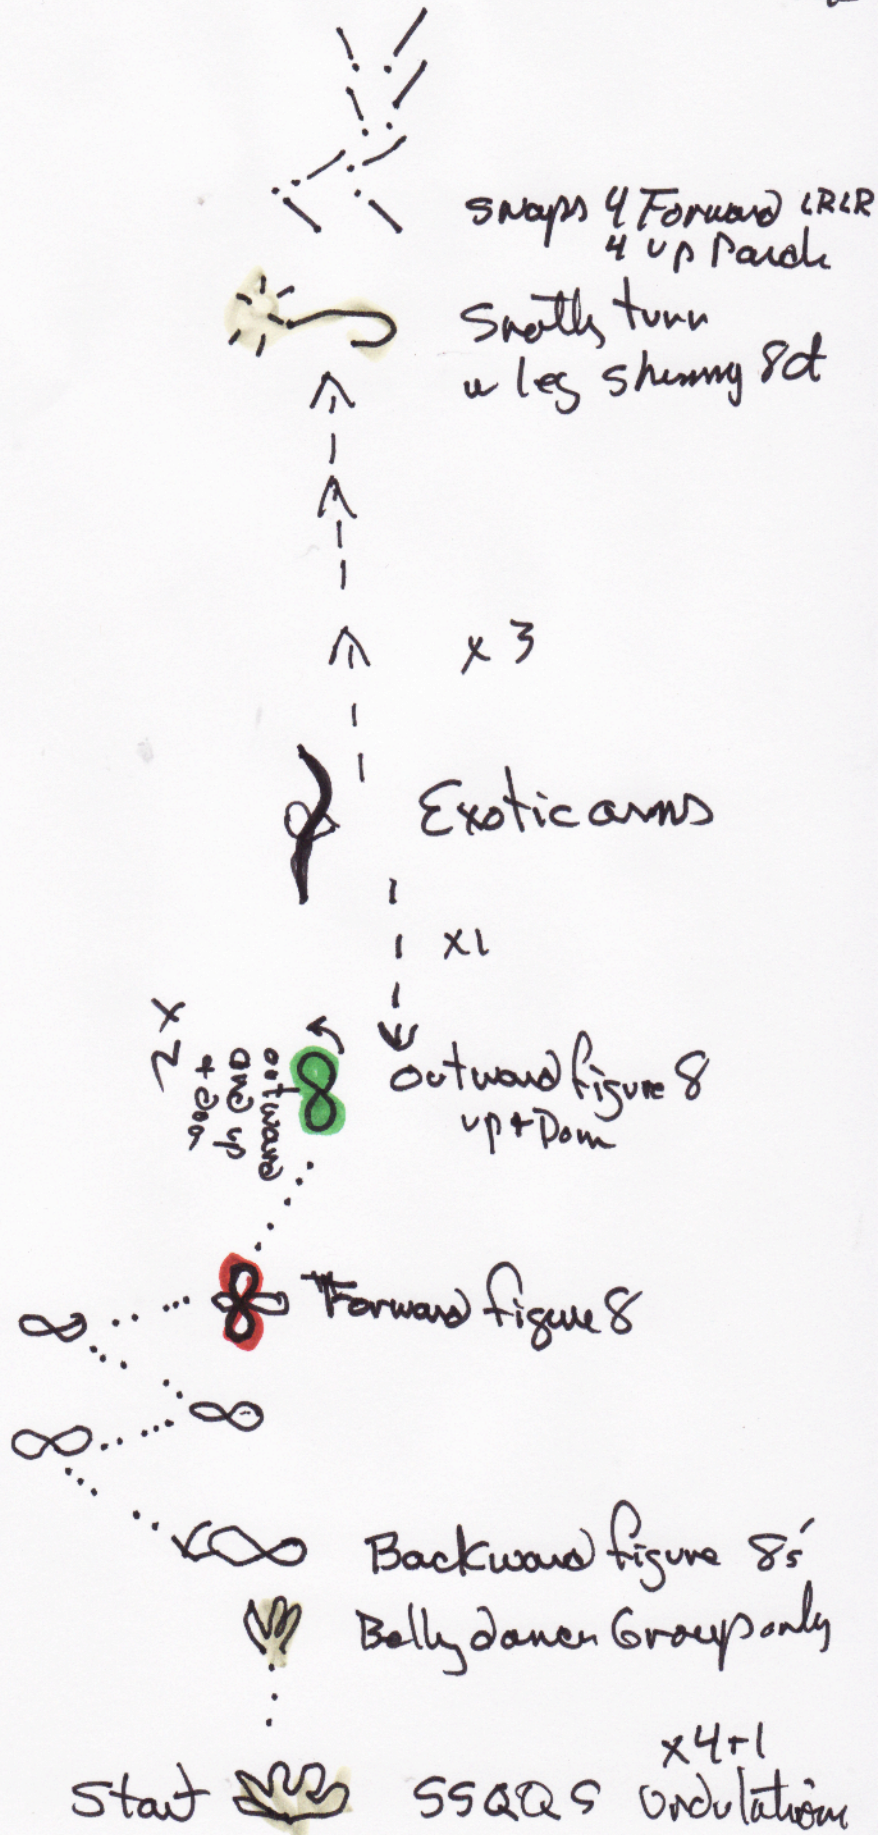 snaps 4 Forward LRLR
4 up Parade
turn
w leg shimmy 8ct
x 3
Exotic arms
x1
2x
outward
and up
+ Dom
Outward figure 8
up + Dom
Forward figure 8
Backward figure 8s'
Bellydancer Group only
x4+1
Start SSQQS Undulations